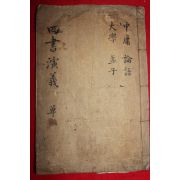 中庸 論語
大學 孟子
四書演義 單